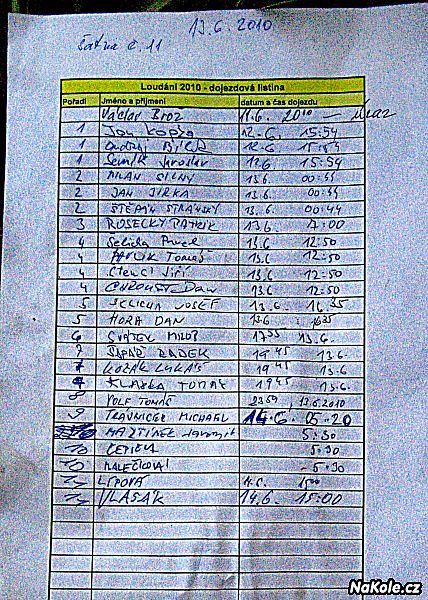 13.6.2010
Šatna č. 11
Loudání 2010 - dojezdová listina
Pořadí Jméno a příjmení datum a čas dojezdu
Václav Broz 11.6. 2010 —
1 Jan Kopka 12.6. 15:54
1 Ondřej 12.6 15:54
1 Šemík Jaroslav 12.6 15:54
2 MILAN SILNÝ 13.6. 00:44
2 JAN JIRKA 13.6. 00:44
2 ŠTĚPÁN STRÁNSKÝ 13.6. 00:44
3 ROSECKÝ PATRIK 13.6. 7:00
4 Sklicha Pavel 13.6 12:50
4 Tomáš 13.6 12:50
4 Jiří 13.6 12:50
4 CHROUST Dan 13.6 12:50
5 SKLICHA JOSEF 13.6. 16:35
5 HORA DAN 13.6 16:35
6 SVÁTEK MILOŠ 17:55 13.6.
7 RADEK 19:45 13.6.
7 KOZÁK LUKÁŠ 19:45 13.6.
7 TOMÁŠ 19:45 13.6.
8 VOLF TOMÁŠ 23:59, 13.6.2010
9 TRÁVNÍČEK MICHAEL 14.6. 05:20
10 MARTÍNEK Jaromír 5:30
10 5:30
10 MALEČKOVÁ - 5:30
LÍPOVÁ 14.6. 15:00
VLASÁK 14.6. 15:00
NaKole.cz